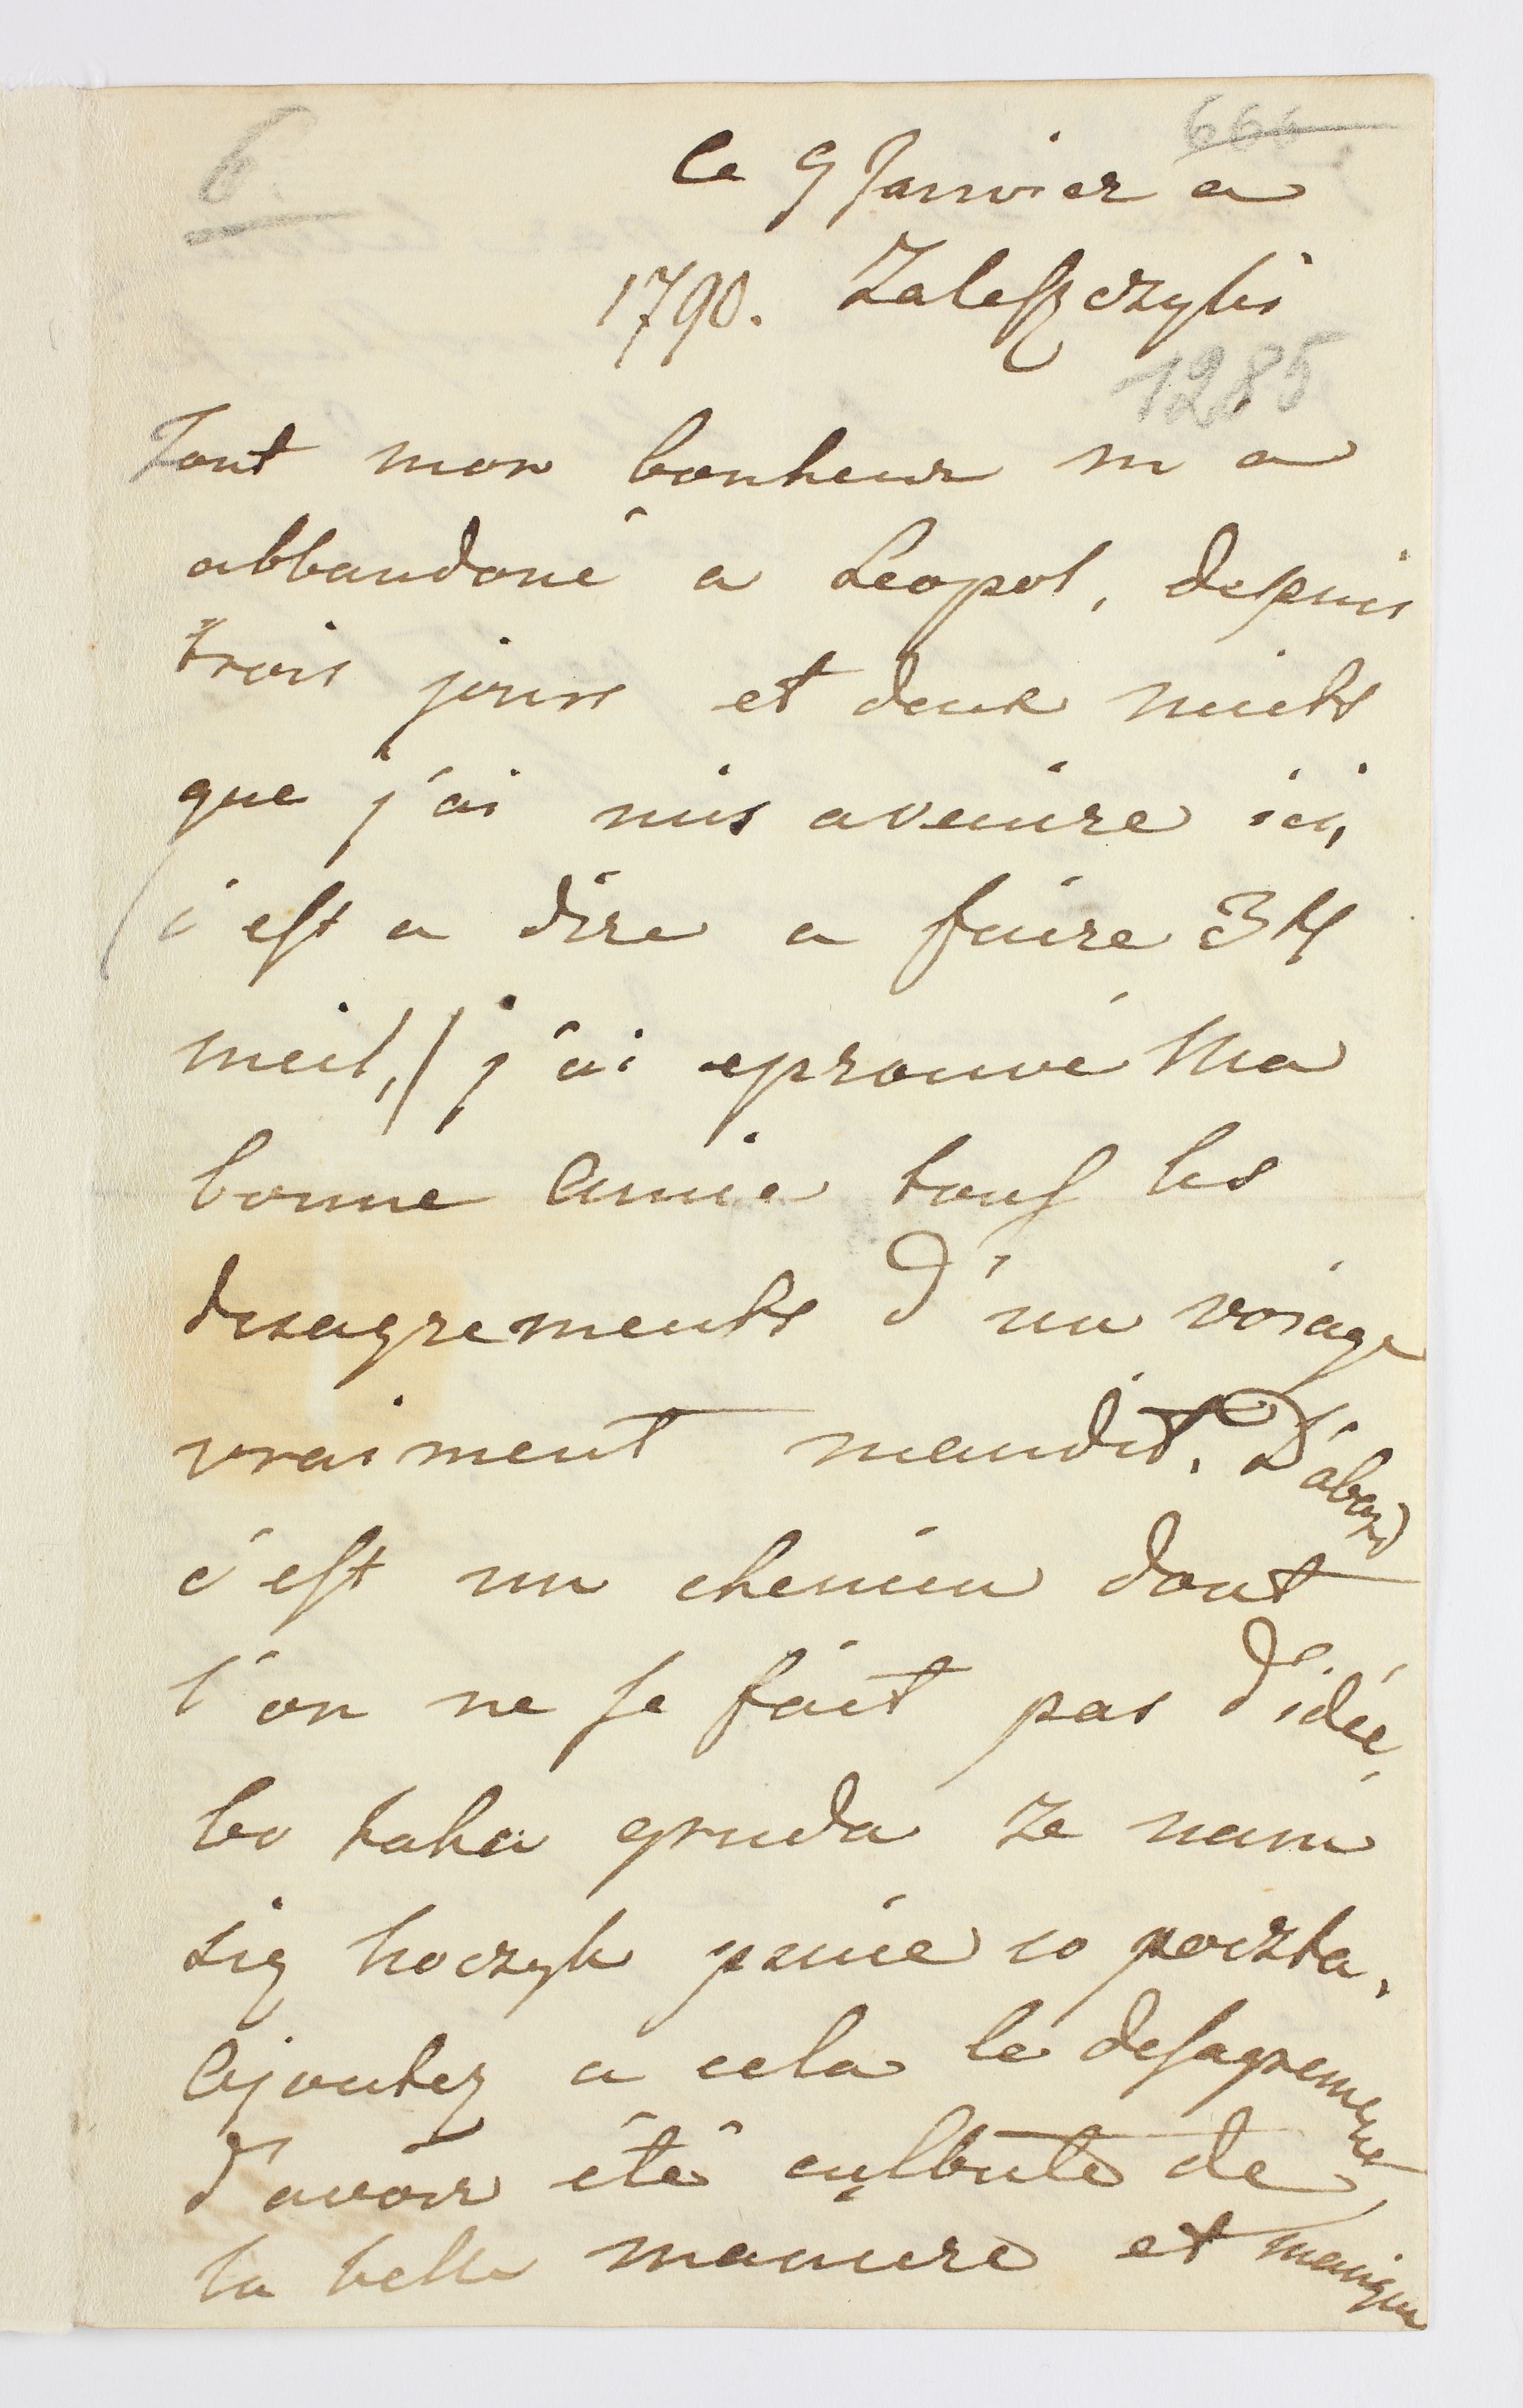 6.
666.
le 9 Janvier a
1790. Zaleszczyki
1285
Tout mon bonheur m a
abbandoné a Leopol, depuis
trois jours et deux nuits
que j'ai mis avenire ici,
(c'est a dire a faire 34
meil,) j'ai eprouvé Ma
bonne Amie tous les
desagrements d'un voiage
vraiment maudit. D'abord
c'est un chemin dont
l'on ne se fait pas d'idée,
bo taka gruda ze nam
się koczyk psuie co poczta.
Ajoutez a cela le desagrement
d'avoir été culbuté de
la belle maniere et manqué